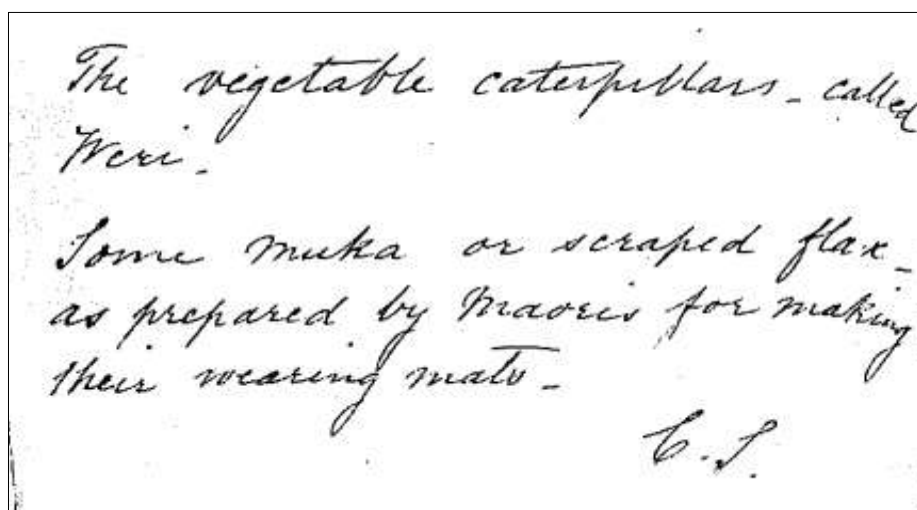 The vegetable caterpillars - called
Weri.
Some muka or scraped flax -
as prepared by Maoris for making
their wearing mats -
C. S.